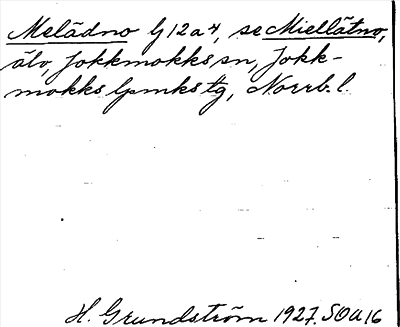 Melädno G 12 a 4, se Miellätno,
älv, Jokkmokks sn, Jokk-
mokks lpmks tg, Norrb. l.
H. Grundström 1927. SOU 16